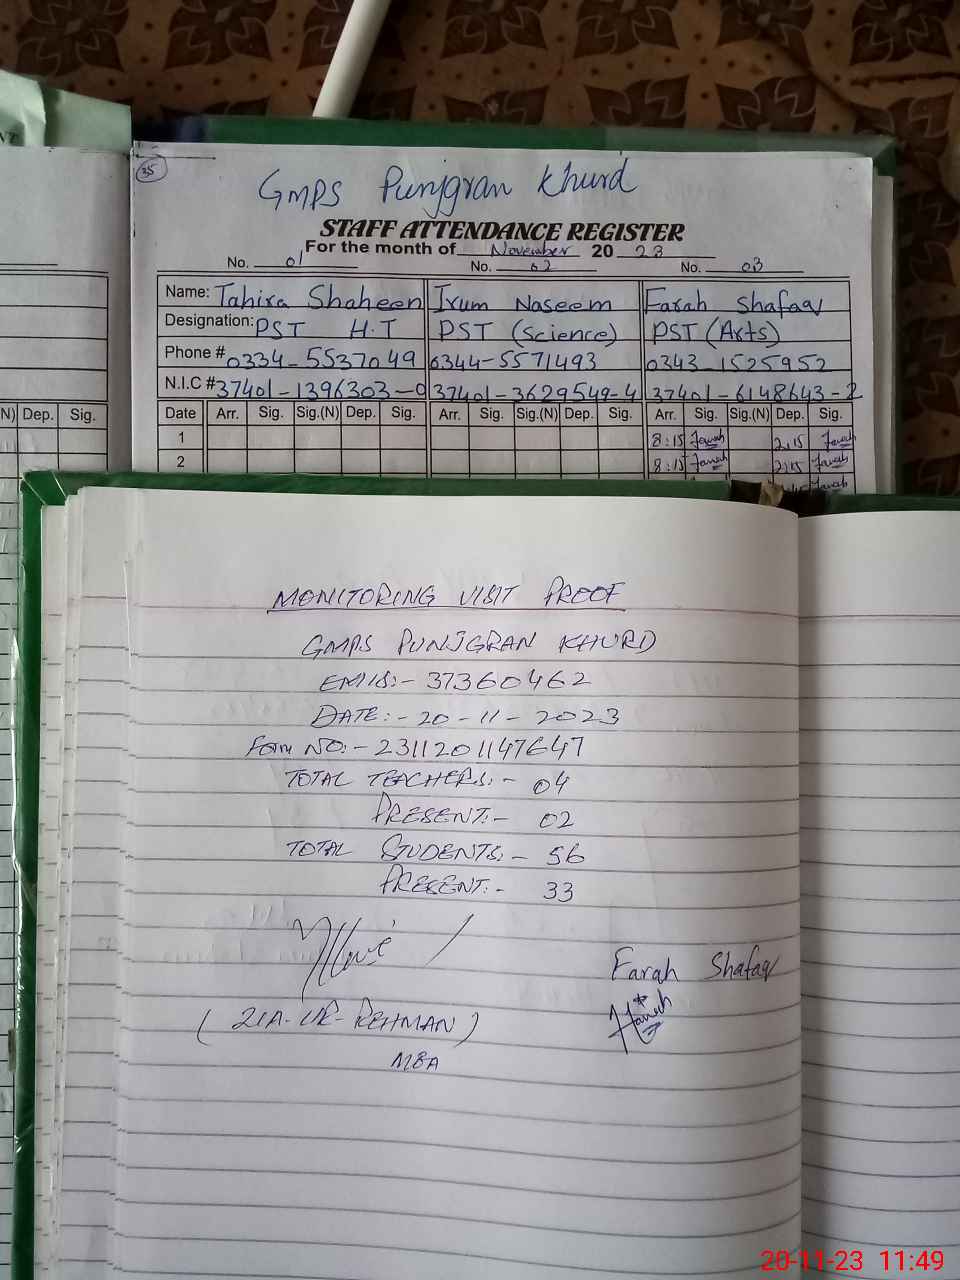 35
GMPS Punjgran Khurd
STAFF ATTENDANCE REGISTER
For the month of November 20 23
No. 01 No. 02 No. 03
Name: Tahira Shaheen Irum Naseem Farah Shafaq
Designation: PST H.T PST (Science) PST (Arts)
Phone # 0334-5537049 0344-5571493 0343-1525952
N.I.C # 37401-1396303-0 37401-3629549-4 37401-6148643-2
N) Dep. Sig. Date Arr. Sig. Sig.(N) Dep. Sig. Arr. Sig. Sig.(N) Dep. Sig. Arr. Sig. Sig.(N) Dep. Sig.
1 8:15 Farah 2:15 Farah
2 8:15 Farah 2:15 Farah
MONITORING VISIT PROOF
GMPS PUNJGRAN KHURD
EMIS:- 37360462
DATE:- 20-11-2023
Form NO:- 2311201147647
TOTAL TEACHERS:- 04
PRESENT:- 02
TOTAL STUDENTS:- 56
PRESENT:- 33
Farah Shafaq
(ZIA-UR-REHMAN)
Farah
MEA
20-11-23 11:49